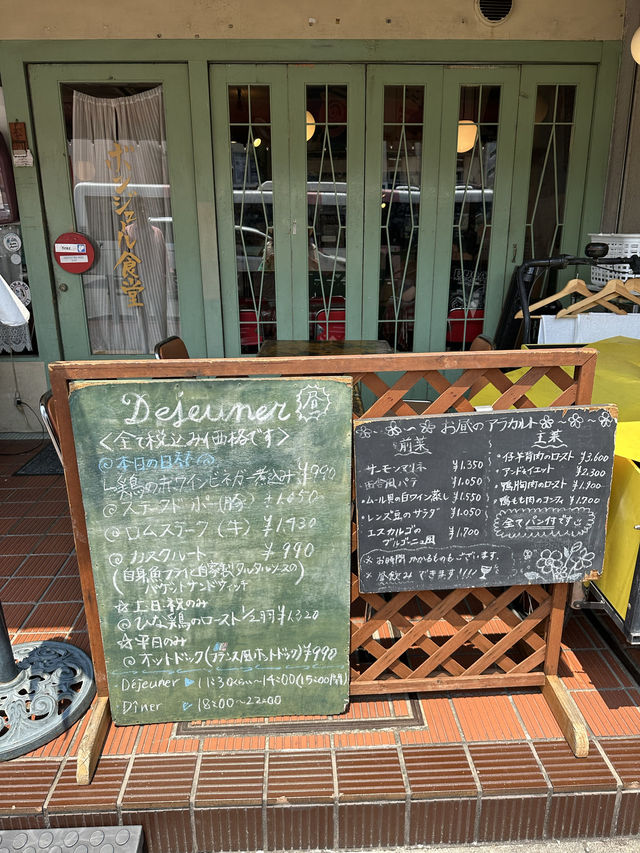 サンジャル食堂
Dejeuner 昼
＜全て税込み価格です＞
◎本日の日替り◎
鶏の赤ワインビネガー煮込み ¥990
◎ステークド ポー(豚) ¥1,650
◎ロムステーク (牛) ¥1,930
◎カスクルート ¥990
(自身魚フライと自家製タルタルソースの
バゲットサンドウィッチ
☆土日祝のみ
◎ひな鶏のロースト 1/2羽 ¥1,320
☆平日のみ
◎オットドック(フランス風ホットドック) ¥990
Déjeuner ▶ 11:30くらい〜14:00(15:00閉店)
Dîner 18:00〜22:00
お昼のアラカルト
前菜
サーモンマリネ ¥1,350
田舎風パテ ¥1,050
・ムール貝の白ワイン蒸し ¥1,550
・レンズ豆のサラダ ¥1,050
エスカルゴの
ブルゴーニュ風 ¥1,700
主菜
・仔羊背肉のロースト ¥3,600
・アンドゥイエット ¥2,300
・鴨胸肉のロースト ¥1,900
・鴨もも肉のコンフィ ¥1,700
全てパン付です
※お時間かかるものもございます。
※昼飲みできます!!!!